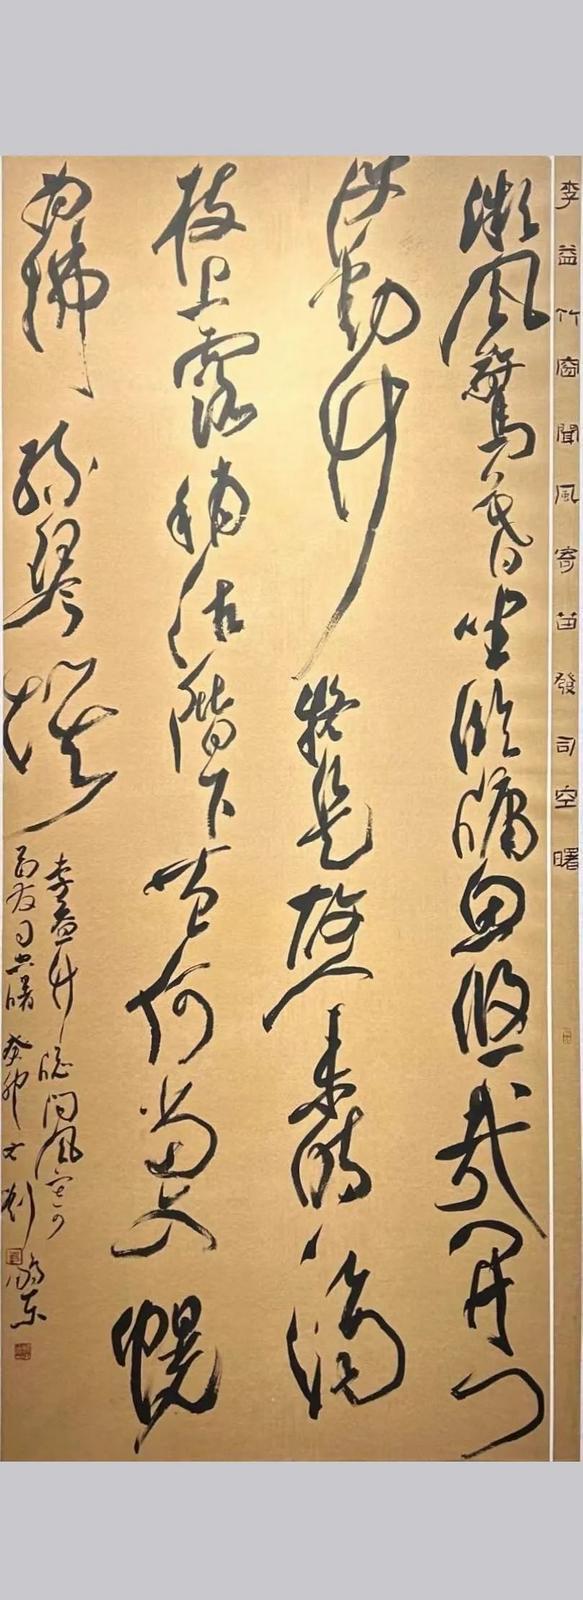 李益竹窗聞風寄苗發司空曙
微風驚暮坐臨牖思悠哉開門
復動竹疑是故人來時滴
枝上露稍沾階下苔何當一入幌
為拂綠琴埃
李益竹窗聞風寄
苗發司空曙癸卯劉東